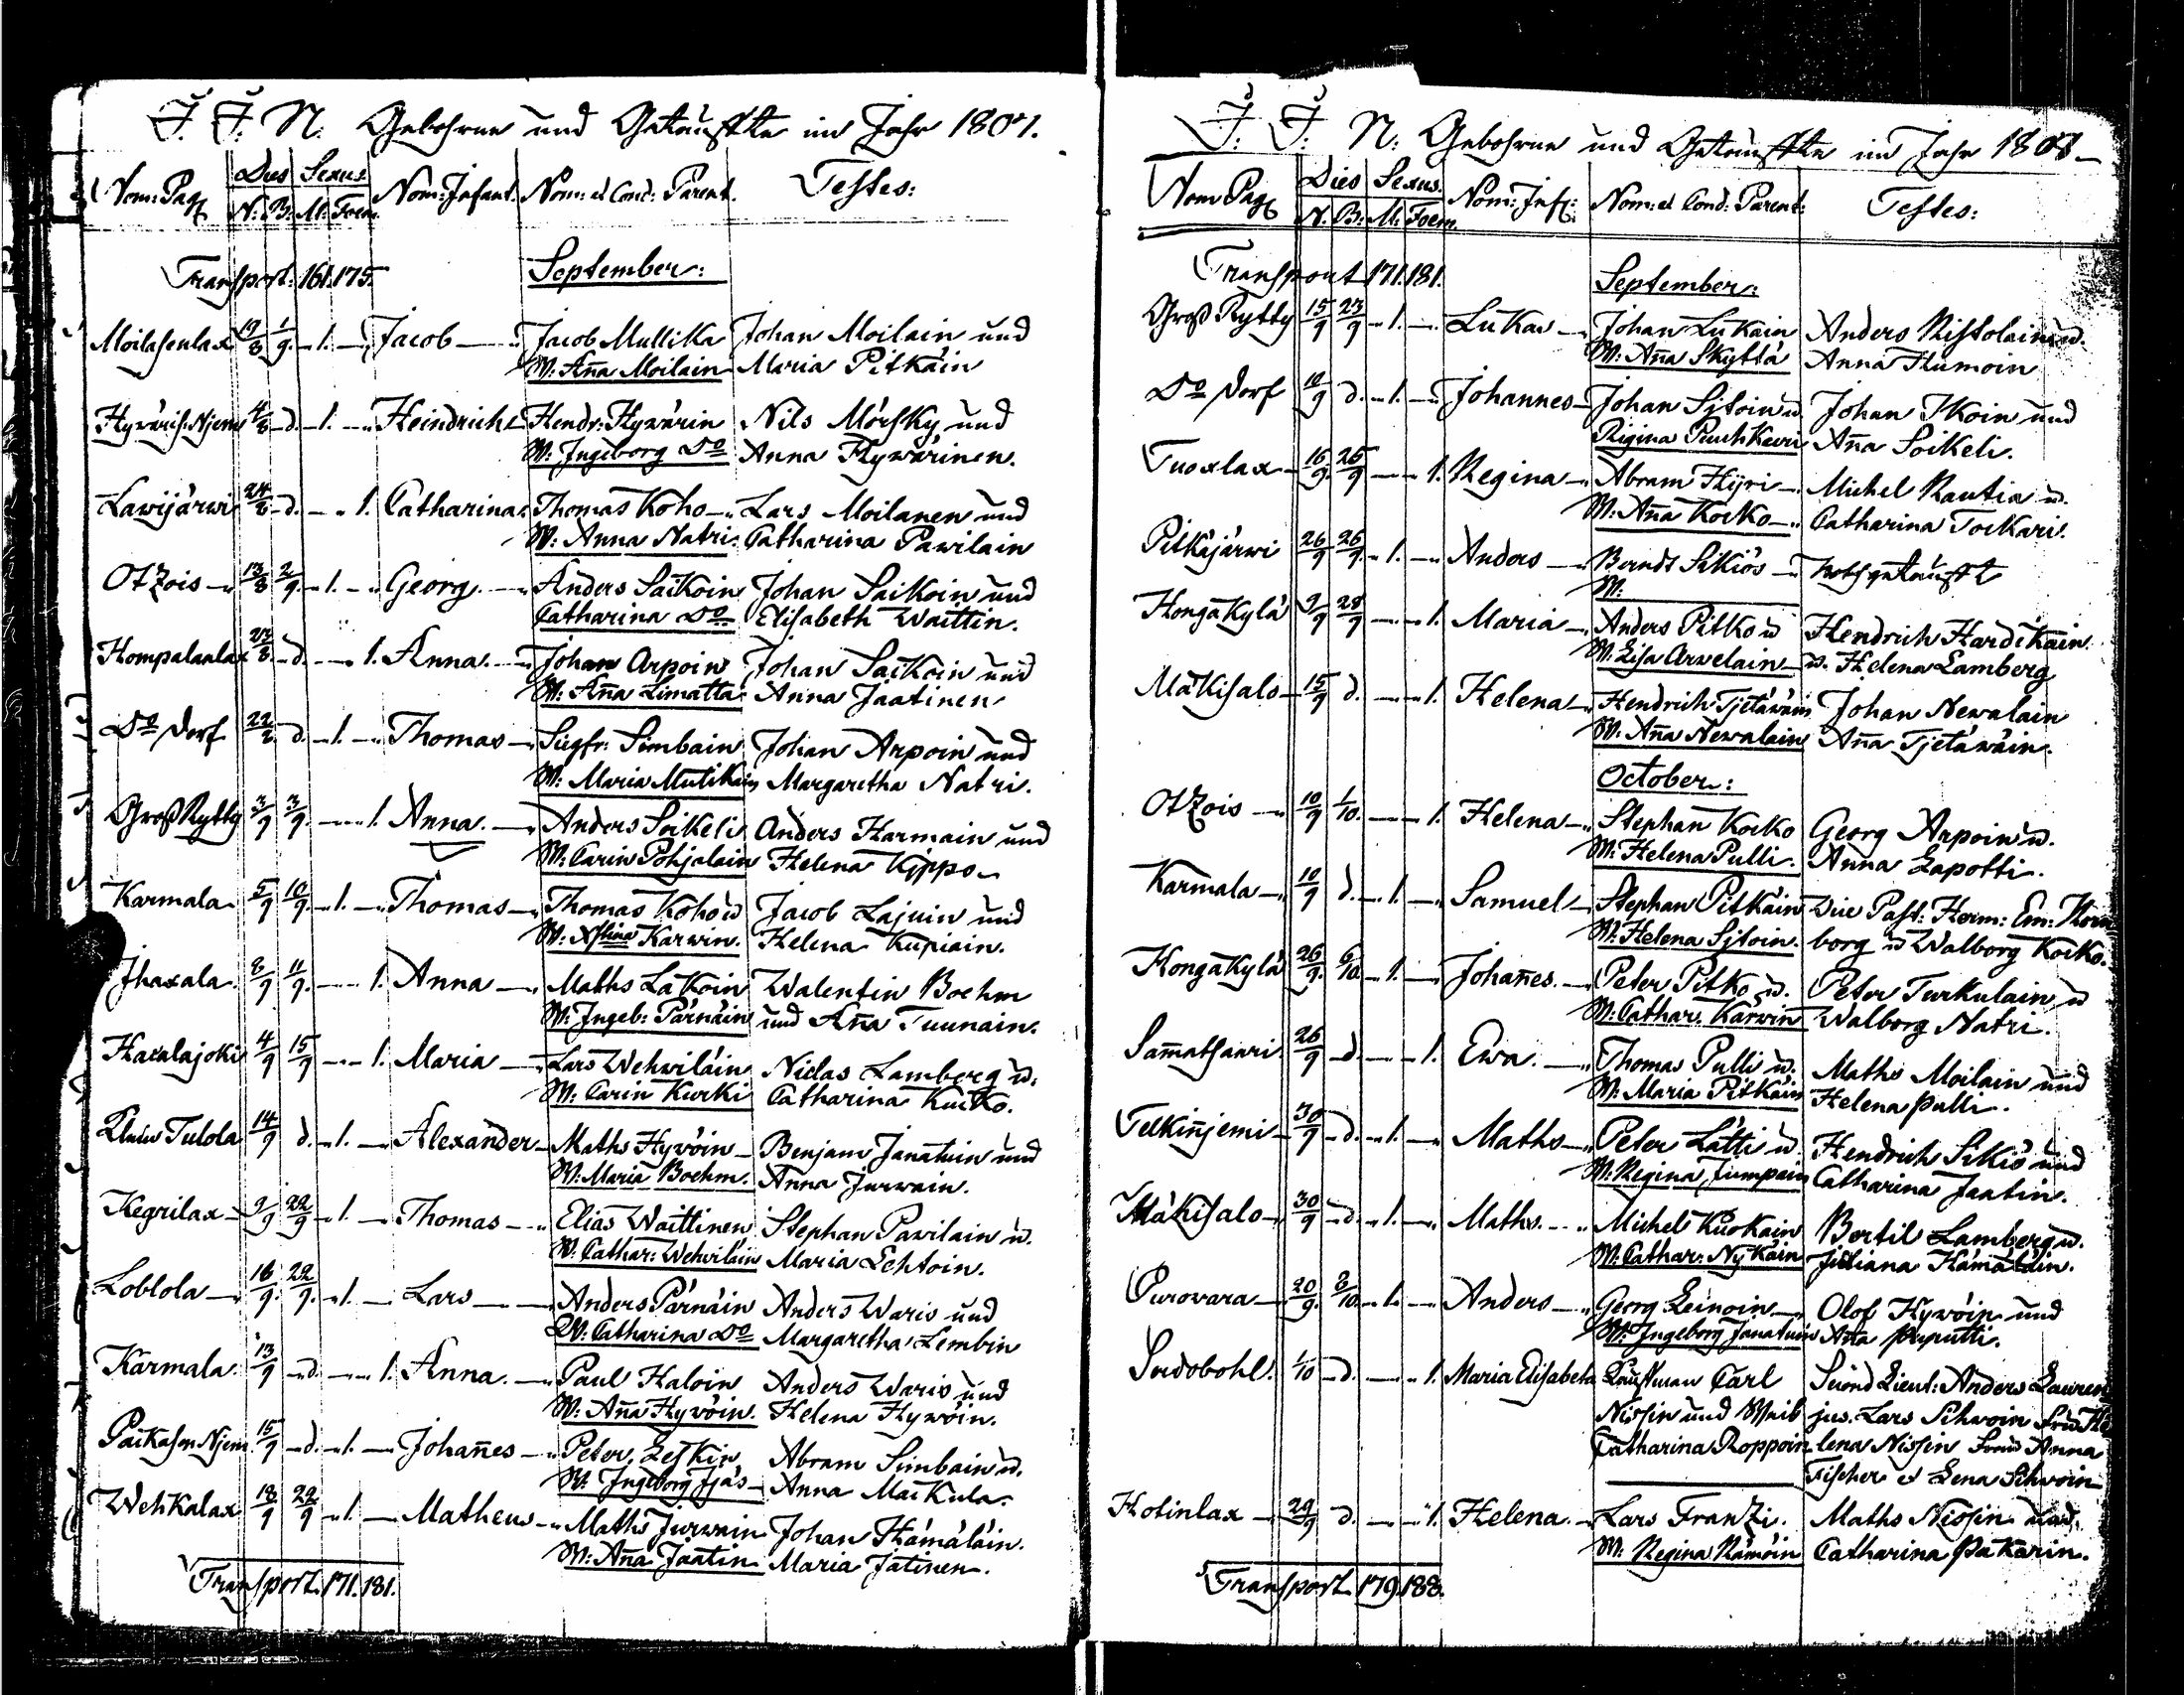 J. J. N: Gebohrne und Getauffte im Jahr 1801.
Nom: Pag Dies Sexus. Nom: Infant. Nom: et Cond: Parent. Testes:
N: B: M: Foem.
Transport: 161. 175. September:
Moilasenlax 19/8 1/9. 1. Jacob Jacob Mullika Johan Moilain und
W: Aña Moilain Maria Pitkäin
Hyväris. Njem 4/8 d. 1. Heindrich Hendr: Hyvärin Nils Mörsky und
W: Ingeborg Do Anna Hyvärinen.
Lavijärwi 24/8 d. 1. Catharina Thomas Koho Lars Moilanen und
W: Anna Natri Catharina Pawilain
Otzois 13/8 2/9. 1. Georg. Anders Saikoin Johan Saikoin und
Catharina Do Elisabeth Waittin.
Hompalanlax 23/8. d. 1. Anna. Johan Arpoin Johan Saikoin und
W: Aña Limatta Anna Jaatinen
Do Dorf 22/8. d. 1. Thomas Siegfr: Simbain Johan Arpoin und
W: Maria Mutikain Margaretha Natri.
Groß Rytty 3/9 3/9. 1. Anna. Anders Soikeli Anders Harmain und
W: Carin Pohjalain Helena Kippo
Karmala 5/9 10/9. 1. Thomas Thomas Koho u Jacob Lajuin und
W: Xstina Karwin. Helena Kupiain.
Ihaxala. 8/9 11/9. 1. Anna Maths Lakoin Walentin Boehm
W: Ingeb: Pärnäin und Aña Tuunain.
Haxalajoki 4/9 15/9 1. Maria Lars Wehwiläin Niclas Lamberg u.
W: Carin Kurki Catharina Kurko.
Tulola 14/9 d. 1. Alexander Maths Hyvöin Benjam Janatuin und
W: Maria Boehm. Anna Jurwain.
Kegrilax 9/9 22/9 1. Thomas Elias Waittinen Stephan Pawilain u.
W. Cathar: Wehwiläin Maria Lehtoin.
Loblola 16/9. 22/9. 1. Lars Anders Pärnäin Anders Waris und
W: Catharina Do Margaretha Lembin
Karmala. 13/9 d. 1. Anna. Paul Haloin Anders Waris und
W: Aña Hyvöin. Helena Hyvöin.
Paikasen Njem. 15/9 d. 1. Johañes Peter Leskin Abram Simbain u.
W: Ingeborg Ijäs Anna Maikula.
Wehkalax 18/9 22/9 1. Matheus Maths Jurwain Johan Hämäläin.
W: Aña Jaatin Maria Jatinen.
Transport. 171. 181.
J. J. N: Gebohrne und Getauffte im Jahr 1801
Nom Pag Dies Sexus. Nom: Inf: Nom: et Cond: Parent: Testes:
N. B: M: Foem.
Transport 171. 181. September:
Groß Rytty 15/9 23/9 1. Lukas Johan Lukain Anders Ristolain u.
W: Aña Skyttä Anna Humoin
Do Dorf 10/9 d. 1. Johannes Johan Sitoin u Johan Ikoin und
Rigina Puuhkeri Aña Soikeli.
Tuoxlax 16/9. 25/9 1. Regina Abram Hyri Michel Rautia u.
W: Aña Korko Catharina Tockari.
Pitkäjärwi 26/9 26/9. 1. Anders Berndt Sikiös nothgetaufft
W:
Hongakylä 9/9 28/9 1. Maria Anders Pitko u Hendrich Hardikain.
W: Lisa Arwelain u. Helena Lamberg
Mäkisalo 15/9 d. 1. Helena Hendrich Tjetäwäin Johan Newalain
W. Aña Newalain Aña Tjetäwäin.
October:
Otzois 10/9 1/10. 1. Helena Stephan Korko Georg Arpoin u.
W: Helena Pulli. Anna Lapotti.
Karmala 10/9 d. 1. Samuel Stephan Pitkäin
W: Helena Sitoin. borg u Walborg Korko.
Hongakylä 26/9. 6/10. 1. Johañes. Peter Pitko u. Peter Turkulain u
W: Cathar. Karwin Walborg Natri.
Sam̄atsaari 26/9 d. 1. Ewa. Thomas Pulli u. Maths Moilain und
W: Maria Pitkäin Helena Pulli.
Telkiñjemi 30/9 d. 1. Maths Peter Lätti u. Hendrich Sikiö und
W: Regina Jumpain Catharina Jaatin.
Mäkisalo 30/9 d. 1. Maths. Michel Kuokain Bertil Lamberg u.
W: Cathar: Nykäin Juliana Hämäläin.
Purovara 20/9. 8/10. 1. Anders Georg Leinoin Olof Hyvöin und
W: Ingeborg Janatuin Aña Puputti.
Sordobohl. 1/10 d. 1. Maria Elisabeta Kaufman Carl Second Lieut: Anders Lauren
Nissin und Weib jus. Lars Sihvoin
Catharina Roppoin lena Nissin Anna
Fischer et Lena Sihvoin
Hotinlax 29/9 d. 1. Helena. Lars Franzi. Maths Nissin und.
W: Regina Rämöin Catharina Pakarin.
Transport 179. 188.